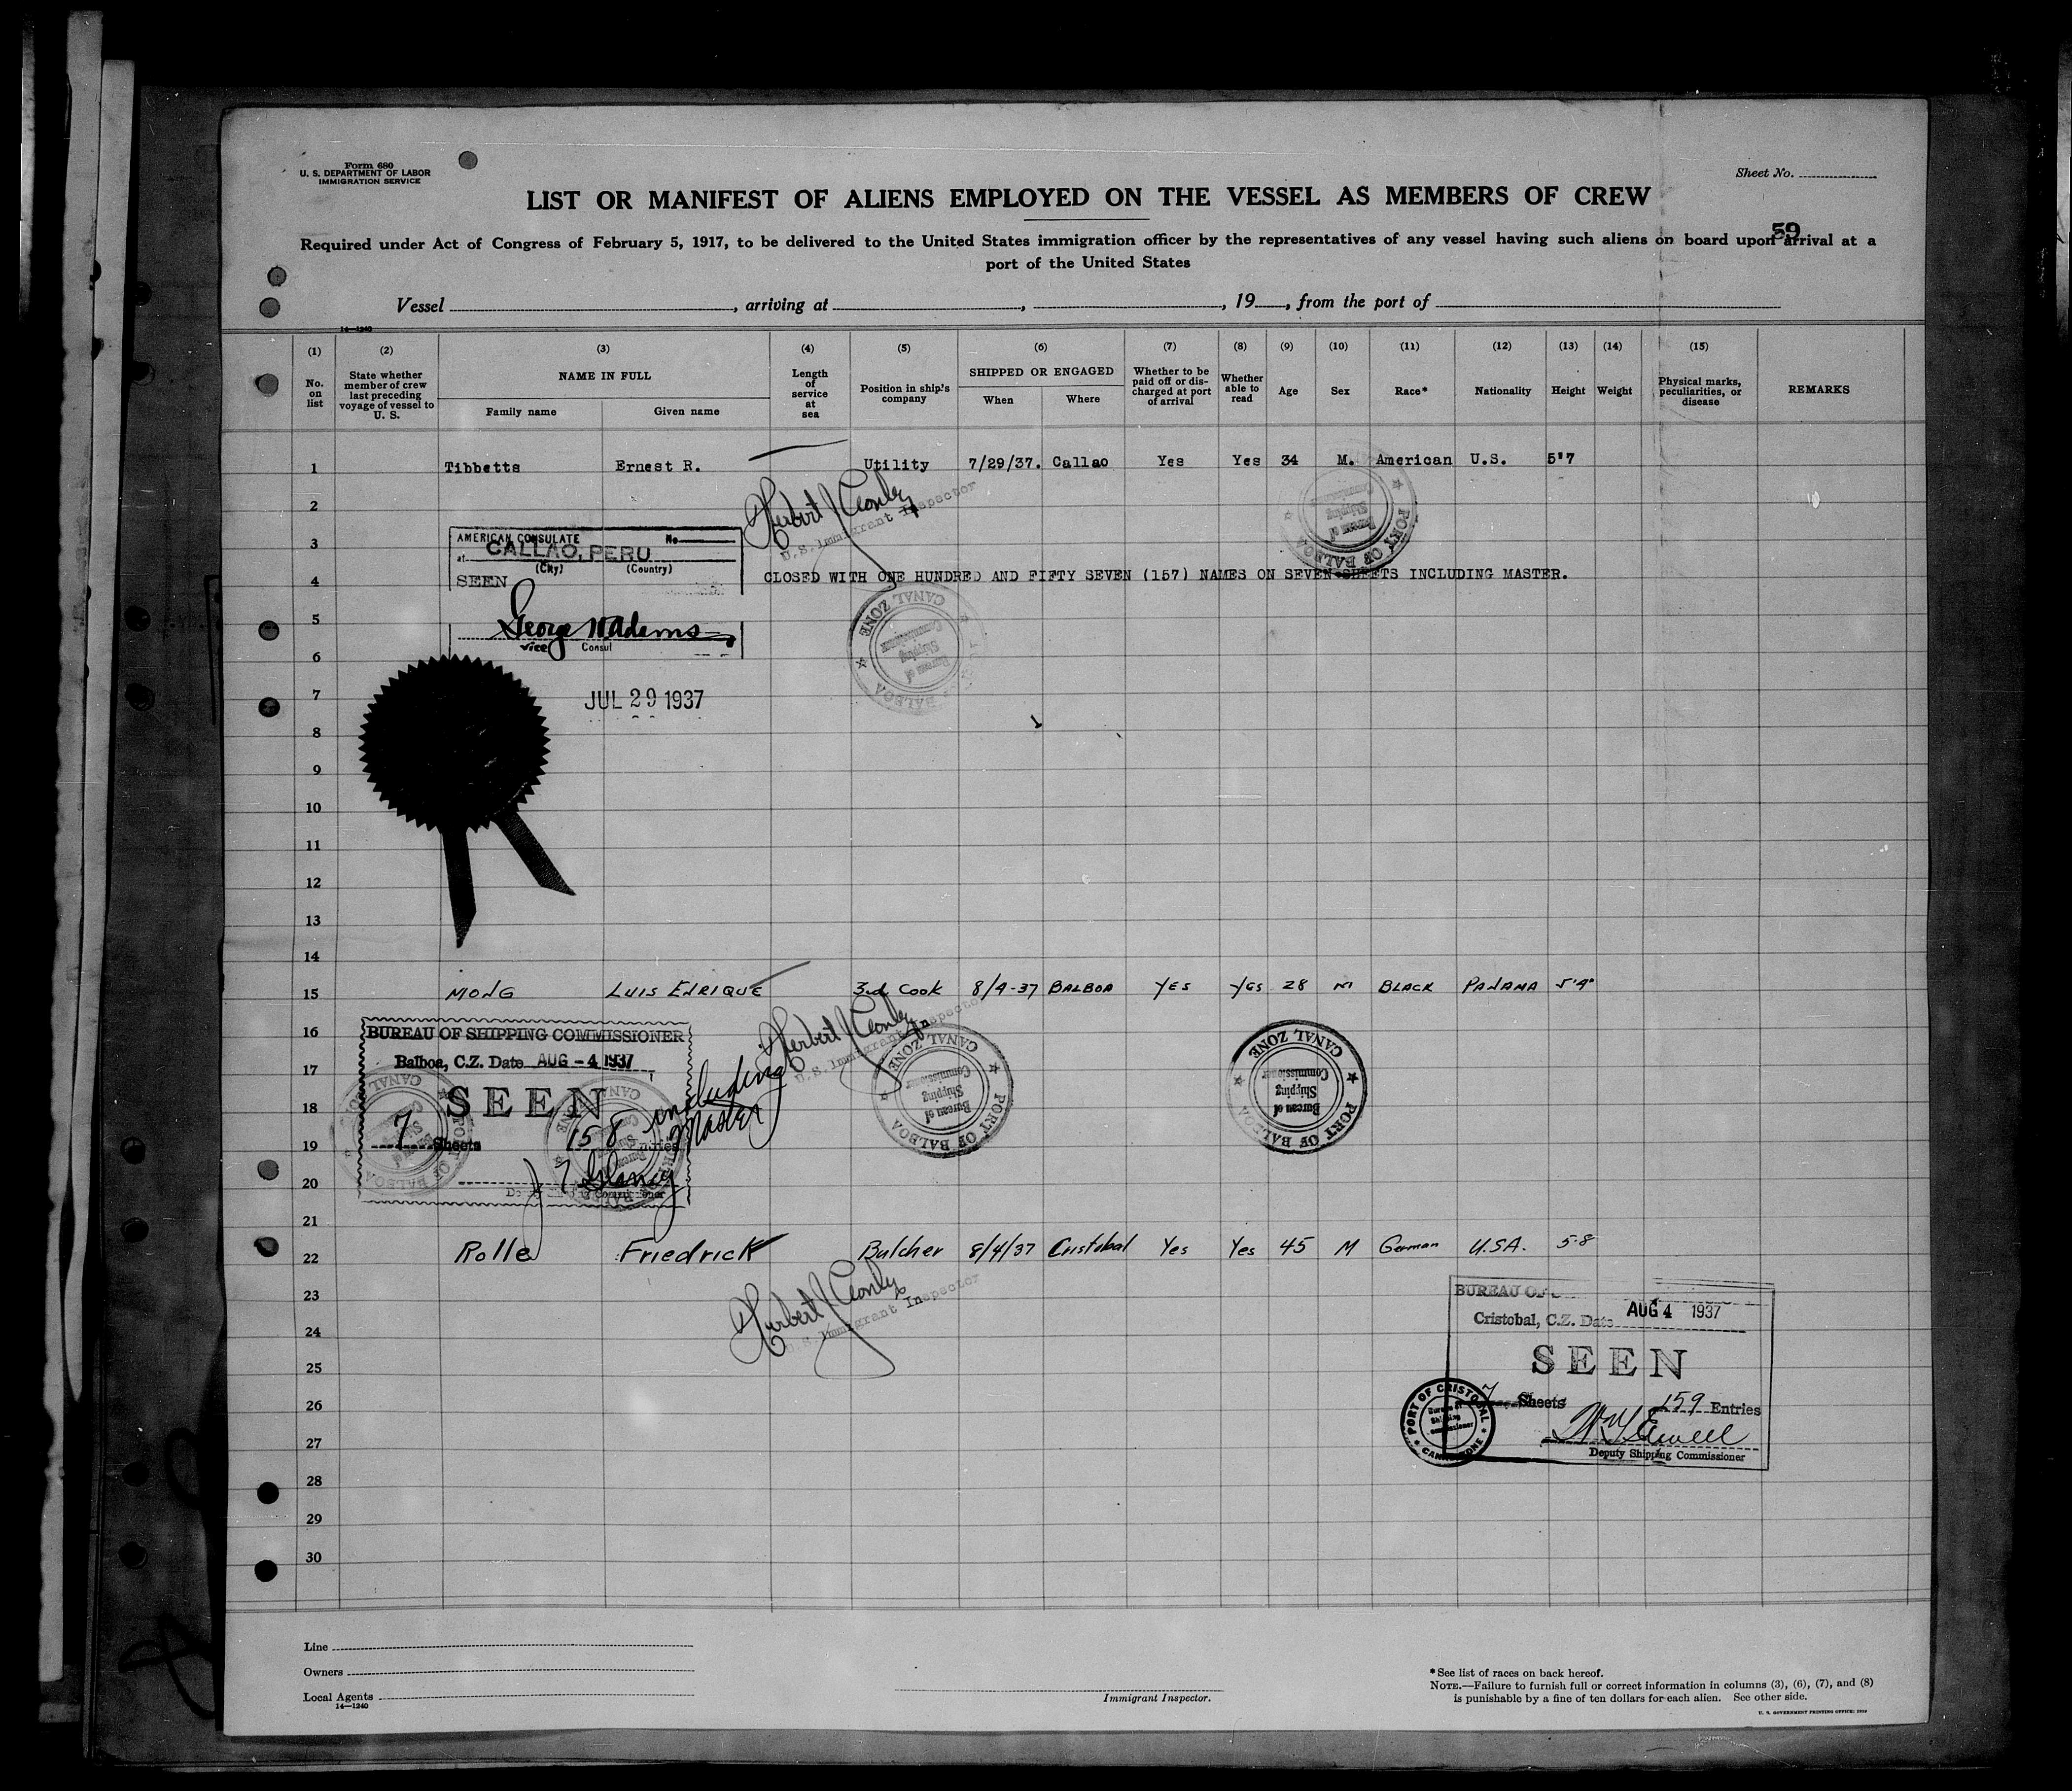 Form 680
U. S. DEPARTMENT OF LABOR
IMMIGRATION SERVICE
Sheet No.
LIST OR MANIFEST OF ALIENS EMPLOYED ON THE VESSEL AS MEMBERS OF CREW
59
Required under Act of Congress of February 5, 1917, to be delivered to the United States immigration officer by the representatives of any vessel having such aliens on board upon arrival at a
port of the United States
Vessel , arriving at , , 19 , from the port of
14—1240
(1) (2) (3) (4) (5) (6) (7) (8) (9) (10) (11) (12) (13) (14) (15)
No. on list
State whether member of crew last preceding voyage of vessel to U. S.
NAME IN FULL
Family name Given name
Length of service at sea
Position in ship's company
SHIPPED OR ENGAGED
When Where
Whether to be paid off or discharged at port of arrival
Whether able to read
Age
Sex
Race*
Nationality
Height
Weight
Physical marks, peculiarities, or disease
REMARKS
1 Tibbetts Ernest R. Utility 7/29/37. Callao Yes Yes 34 M. American U.S. 5'7
2
U.S. Immigrant Inspector
PORT OF BALBOA
Bureau of Shipping Commissioner
3
AMERICAN CONSULATE No
at CALLAO, PERU
(City) (Country)
4
SEEN
CLOSED WITH ONE HUNDRED AND FIFTY SEVEN (157) NAMES ON SEVEN SHEETS INCLUDING MASTER.
5
George W Adams
Vice Consul
CANAL ZONE
Bureau of Shipping Commissioner
BALBOA
6
7
JUL 29 1937
8
9
10
11
12
13
14
15 MONG LUIS ENRIQUE 3rd COOK 8/4-37 BALBOA YES YES 28 M BLACK PANAMA 5'4"
16
BUREAU OF SHIPPING COMMISSIONER
Balboa, C.Z. Date AUG - 4 1937
17
SEEN
18
7 Sheets 158 including Master
19
20
U.S. Immigrant Inspector
CANAL ZONE
PORT OF BALBOA
Bureau of Shipping Commissioner
CANAL ZONE
PORT OF BALBOA
Bureau of Shipping Commissioner
21
22 Rolle Friedrick Butcher 8/4/37 Cristobal Yes Yes 45 M German U.S.A. 5-8
23
U.S. Immigrant Inspector
BUREAU OF
Cristobal, C.Z. Date AUG 4 1937
24
25
SEEN
26
7 Sheets 159 Entries
PORT OF CRISTOBAL
Bureau of Shipping Commissioner
CANAL ZONE
27
Deputy Shipping Commissioner
28
29
30
Line
Owners
Local Agents
14—1240
Immigrant Inspector.
*See list of races on back hereof.
NOTE.—Failure to furnish full or correct information in columns (3), (6), (7), and (8)
is punishable by a fine of ten dollars for each alien. See other side.
U. S. GOVERNMENT PRINTING OFFICE: